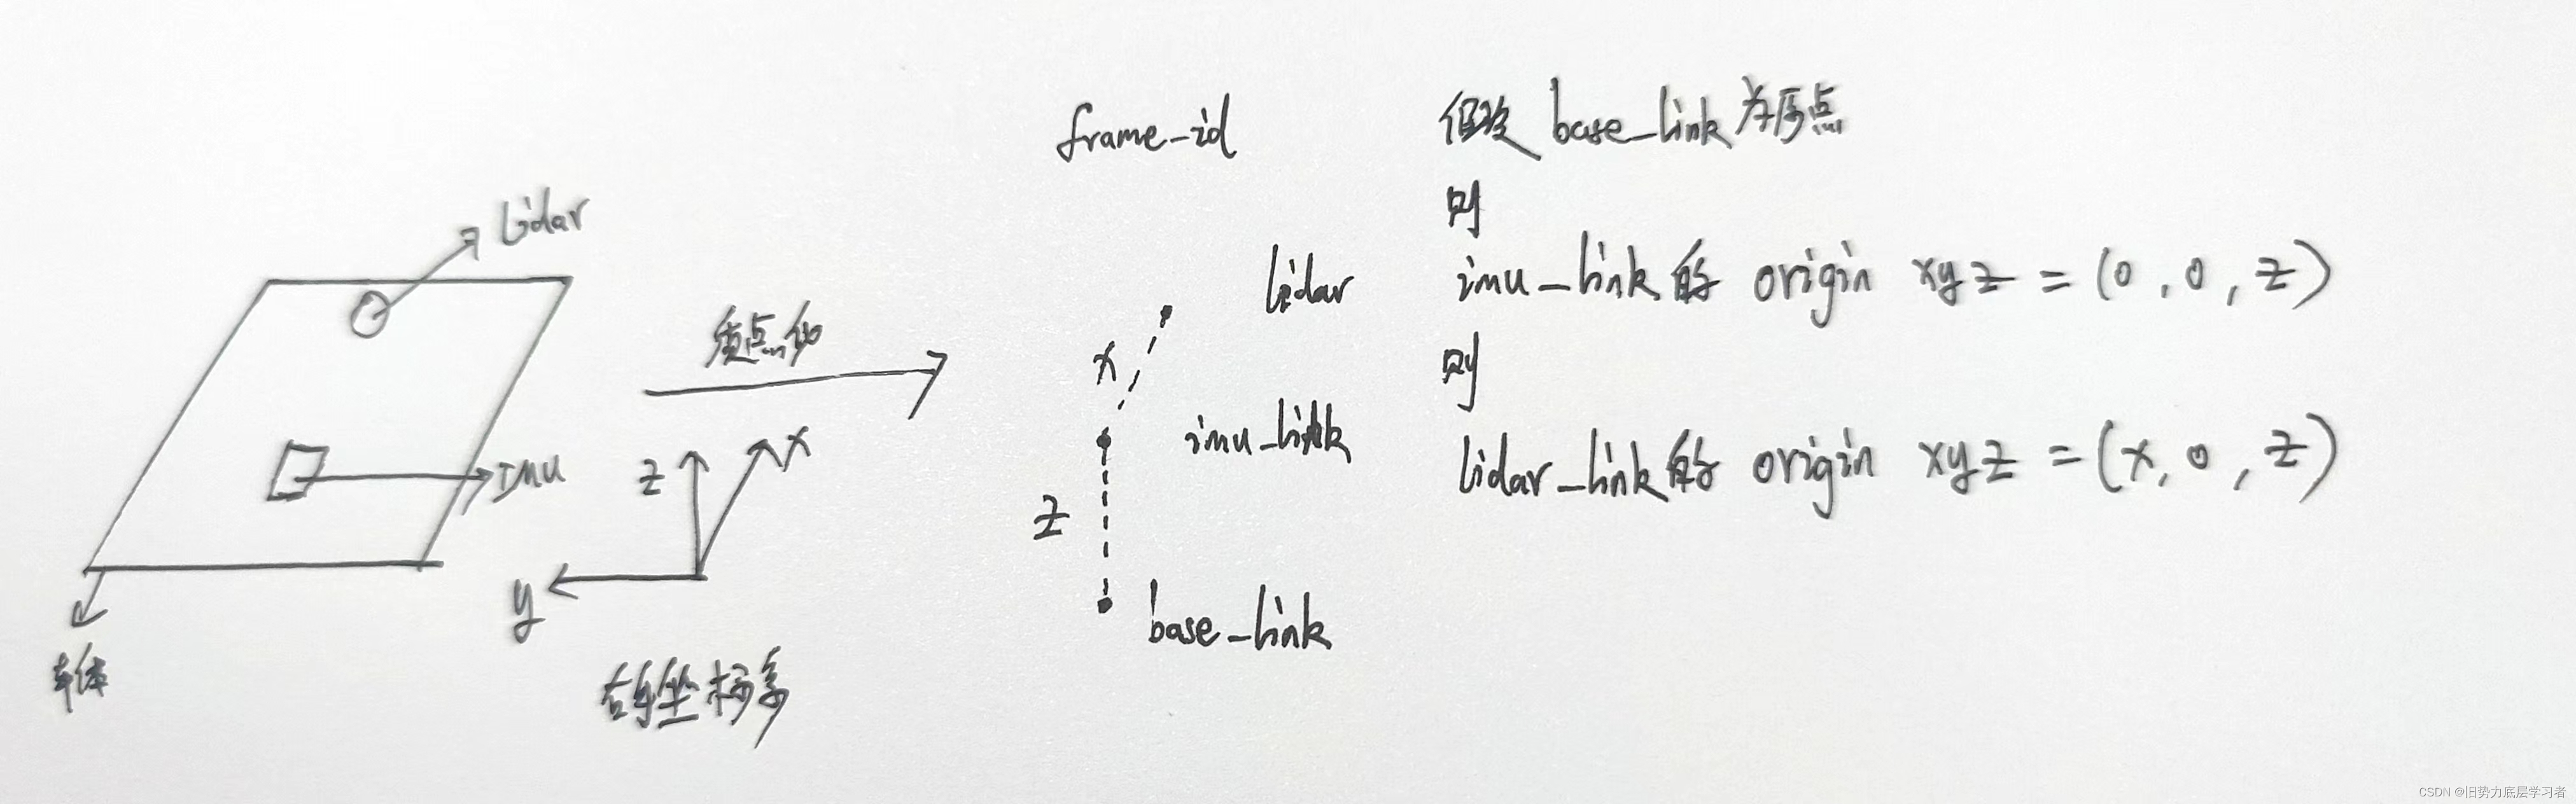 Lidar
IMU
车体
质点化
z
x
y
右手坐标系
frame_id
lidar
x
imu_link
z
base_link
假设 base_link 为原点
则
imu_link 的 origin xyz = (0 , 0 , z)
则
lidar_link 的 origin xyz = (x, 0 , z)
CSDN @旧势力底层学习者